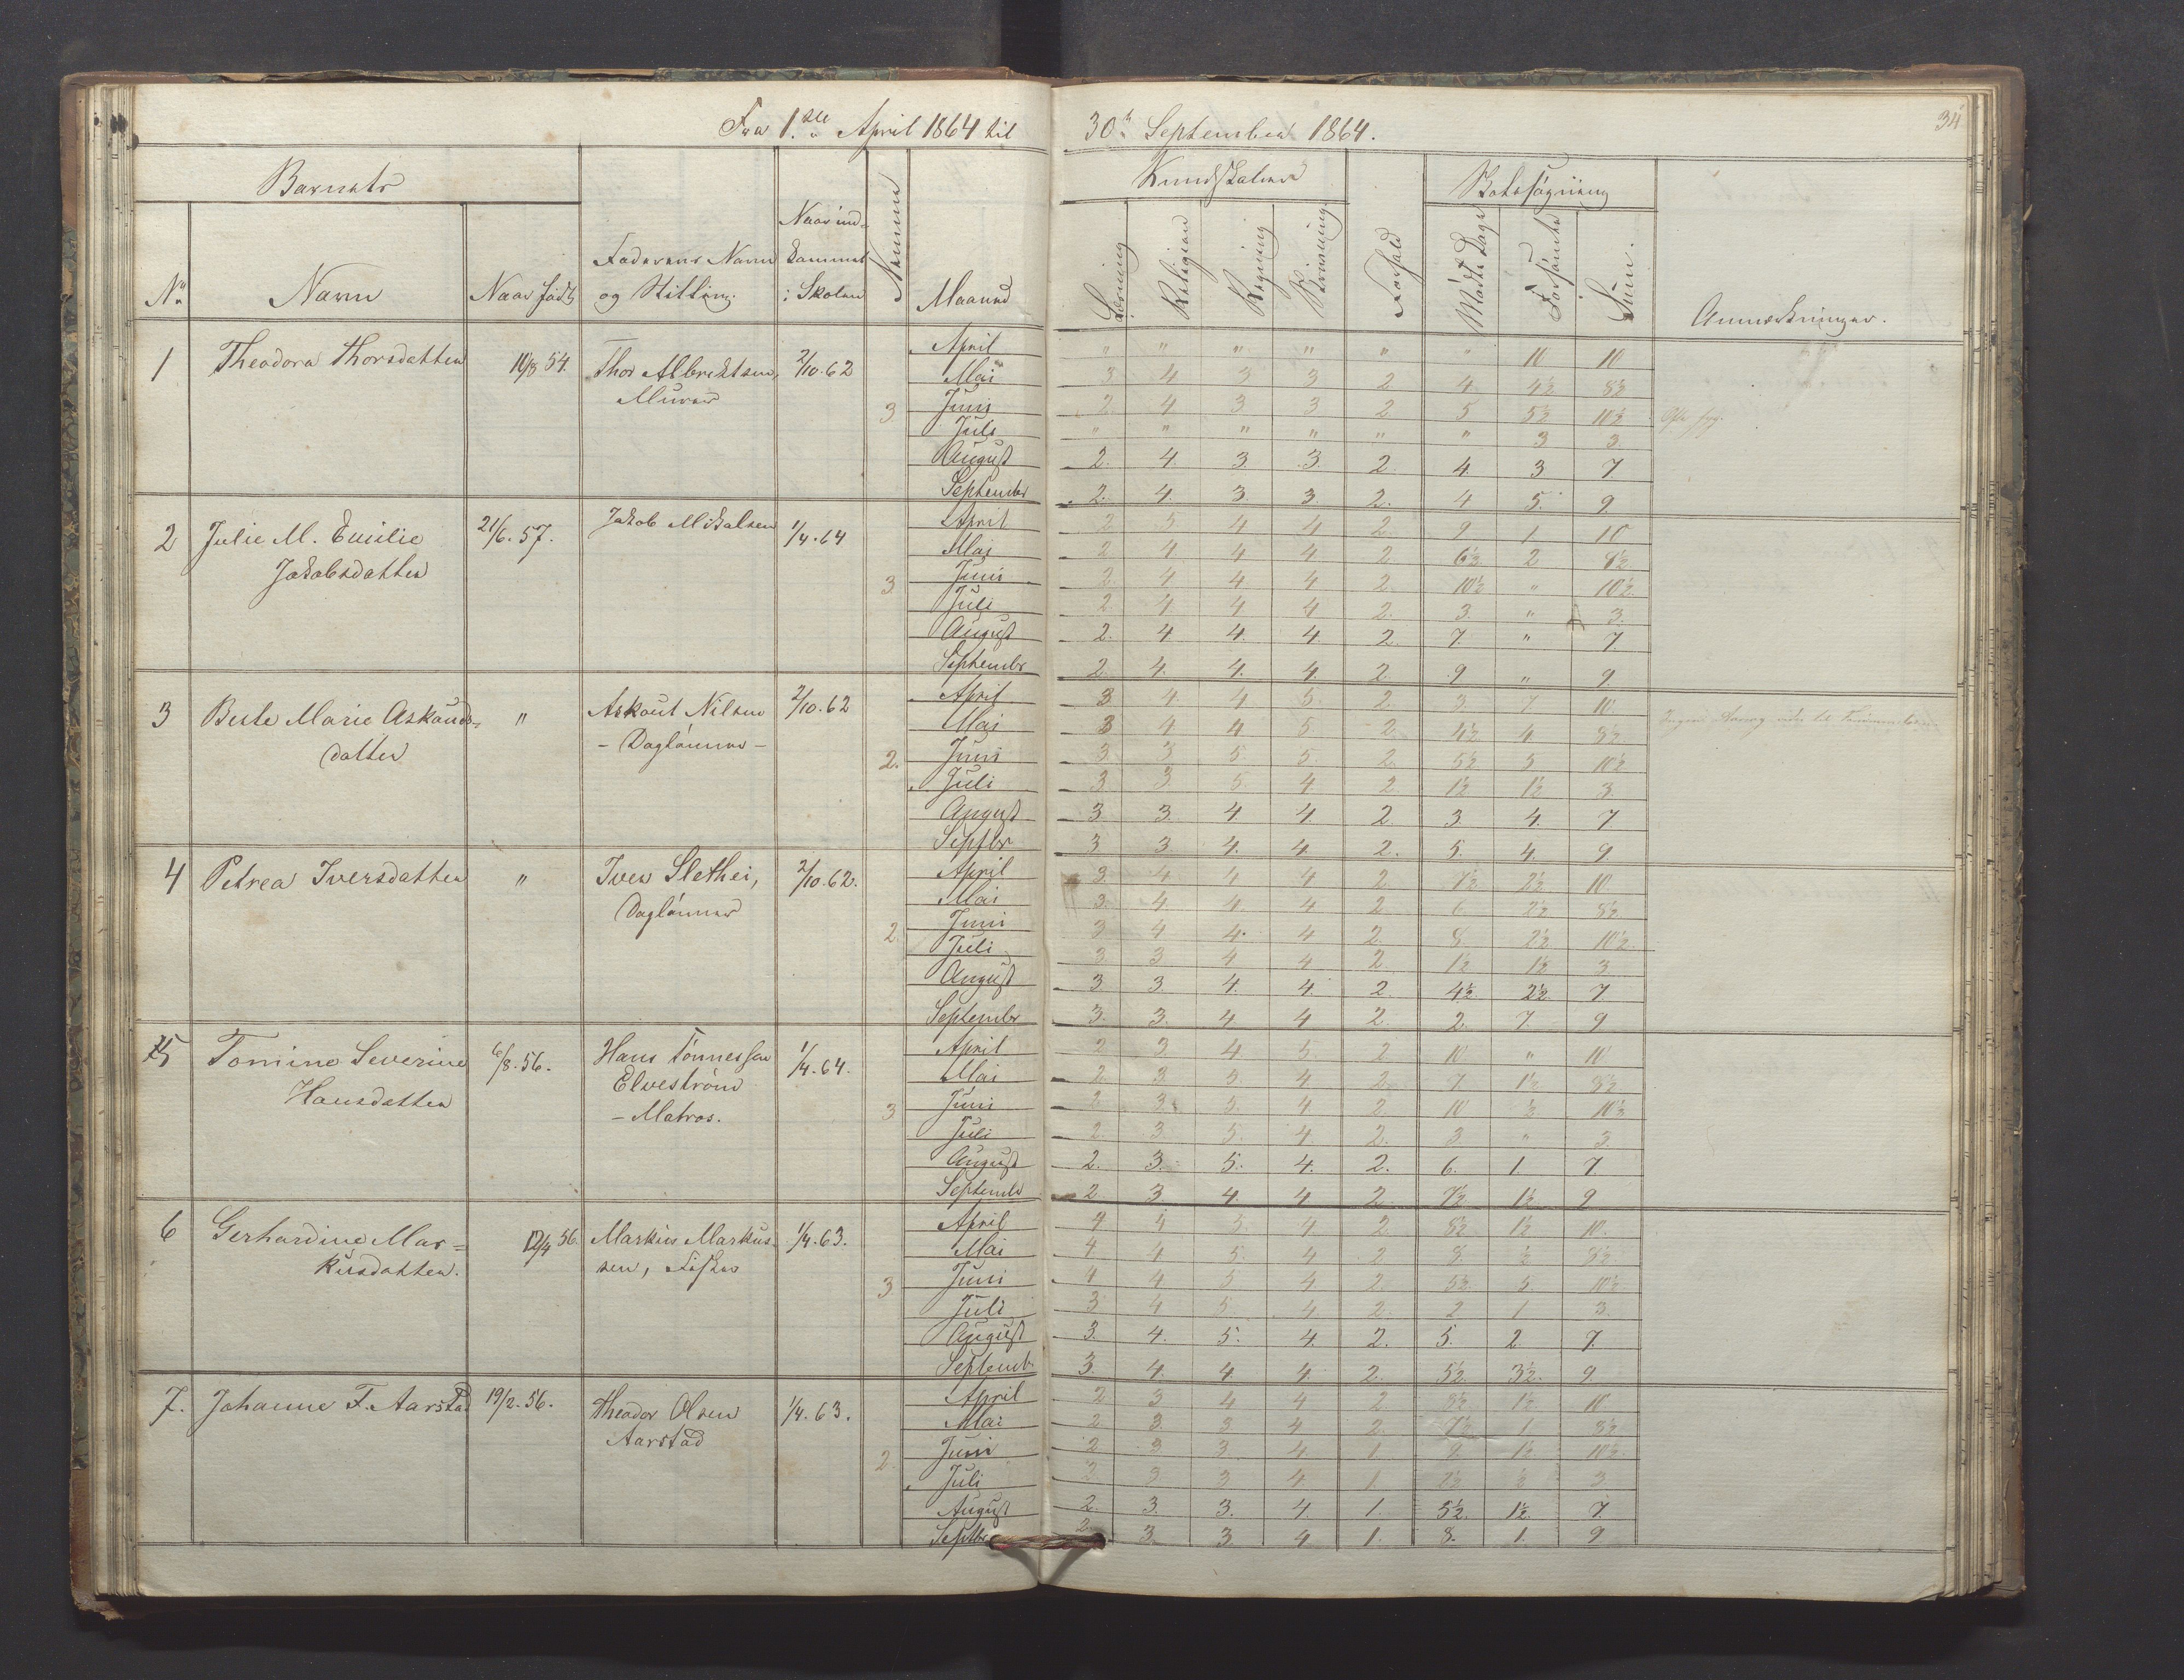 Fra 1.ste April 1864 til 30te September 1864.
34
Barnets
Kundskaber
Skolesøgning
No
Navn
Naar født
Faderens Navn og Stilling.
Naar ind- kommet i Skolen
Maaned
Læsning
Religion
Regning
Skrivning
Forhold
Mødte Dage
Forsømte
Sum.
Anmærkninger.
1 Theodora Thorsdatter 10/8 54. Thor Albrektsen, 2/10.62
Murer
3
April " " " " " " 10 10
Mai 3 4 3 3 2 4 4½ 8½
Juni 2 4 3 3 2 5 5½ 10½
Juli " " " " " " 3 3.
August 2. 4. 3. 3. 2 4. 3 7.
September 2. 4. 3. 3. 2. 4 5. 9
2 Julie M. Emilie 21/6. 57. Jakob Mikalsen 1/4.64
Jakobsdatter
3.
April 2 5 4 4 2 9 1 10
Mai 2 4 4 4 2 6½ 2 8½
Juni 2 4 4 4 2. 10½ " 10½
Juli 2. 4 4 4 2. 3. " 3.
August 2. 4. 4. 4. 2 7. " 7
Septembr 2. 4. 4. 4. 2. 9 " 9
3 Berte Marie Askouds= " Askout Nilsen 2/10.62
datter - Daglønner -
2.
April 3 4 4 5 2 3 7 10
Mai 3 4 4 5 2. 4½ 4 8½
Juni 3. 3 5 5. 2. 5½ 5 10½
Juli 3. 3. 5. 4 2 1½ 1½ 3.
August 3. 3. 4. 4. 2. 3. 4. 7.
Septbr 3 3 4. 4. 2. 5. 4. 9
4 Petrea Iversdatter " Iver Slethei, 2/10.62.
Daglønner
2.
April 3. 4 4 4 2. 7½ 2½ 10
Mai 3. 4. 4. 4 2 6 2½ 8½
Juni 3 4 4. 4 2. 8 2½ 10½
Juli 3. 3 4 4 2 1½ 1½ 3
August 3 3. 4. 4. 2. 4½ 2½ 7
Septembr 3. 3. 4. 4 2. 2. 7. 9
5 Tomine Severine 6/8. 56. Hans Tønnessen 1/4.64.
Hansdatter Elvestrøm
- Matros.
3.
April 2 3 4 5 2 10 " 10
Mai 2. 3 5. 4 2. 7. 1½ 8½
Juni 2 3. 5. 4 2. 10 ½ 10½
Juli 2. 3 5. 4. 2. 3 " 3.
August 2. 3. 5. 4. 2. 6. 1 7.
Septembr 2 3. 4. 4 2. 7½ 1½ 9
6 Gerhardine Mar= 12/4 56. Markus Markus- 1/4.63.
kusdatter. sen, Fisker
3.
April 4 4 5. 4 2 8½ 1½ 10.
Mai 4 4 5. 4 2 8. ½ 8½
Juni 4 4 5 4 2. 5½ 5. 10½
Juli 3. 4 5. 4. 2. 2 1 3.
August 3. 4. 5. 4. 2. 5. 2. 7.
Septembr 3. 4. 4 4 2. 5½ 3½. 9
7. Johanne F. Aarstad 19/2. 56. Theodor Olsen 1/4. 63.
Aarstad
2.
April 2 3 4 4 2 8½ 1½ 10
Mai 2 3. 3 4 2 7½ 1 8½
Juni 2 3 3. 4 1 9 1½ 10½
Juli 2 3 3 4. 1 2½ ½ 3.
August 2. 3. 3. 4. 1. 5½ 1½. 7
Septbr 2. 3. 3. 4 1. 8. 1. 9